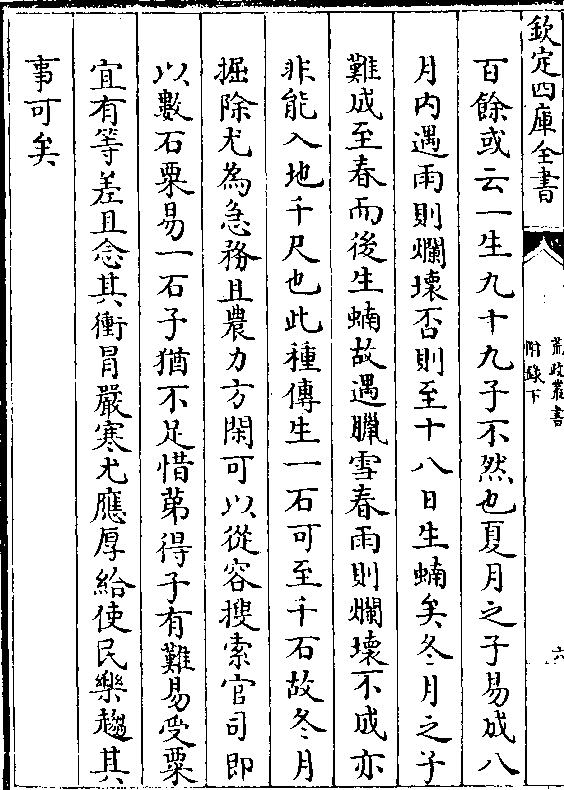 欽定四庫全書
荒政叢書
附錄下
六
百餘或云一生九十九子不然也夏月之子易成八
月内遇雨則爛壞否則至十八日生蝻矣冬月之子
難成至春而後生蝻故遇臘雪春雨則爛壞不成亦
非能入地千尺也此種傳生一石可至千石故冬月
掘除尤為急務且農力方閑可以從容搜索官司即
以數石粟易一石子猶不足惜第得子有難易受粟
宜有等差且念其衝冒嚴寒尤應厚給使民樂趨其
事可矣